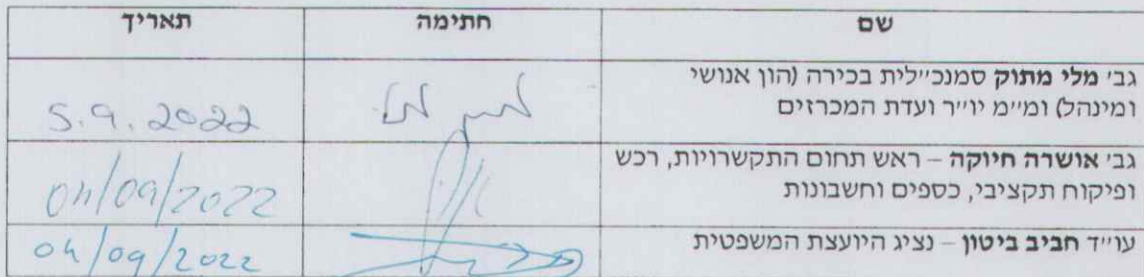 שם חתימה תאריך
גב' מלי מתוק סמנכ"לית בכירה (הון אנושי
ומינהל) ומ"מ יו"ר ועדת המכרזים
5.9.2022
גב' אושרה חיוקה – ראש תחום התקשרויות, רכש
ופיקוח תקציבי, כספים וחשבונות
04/09/2022
עו"ד חביב ביטון – נציג היועצת המשפטית
04/09/2022